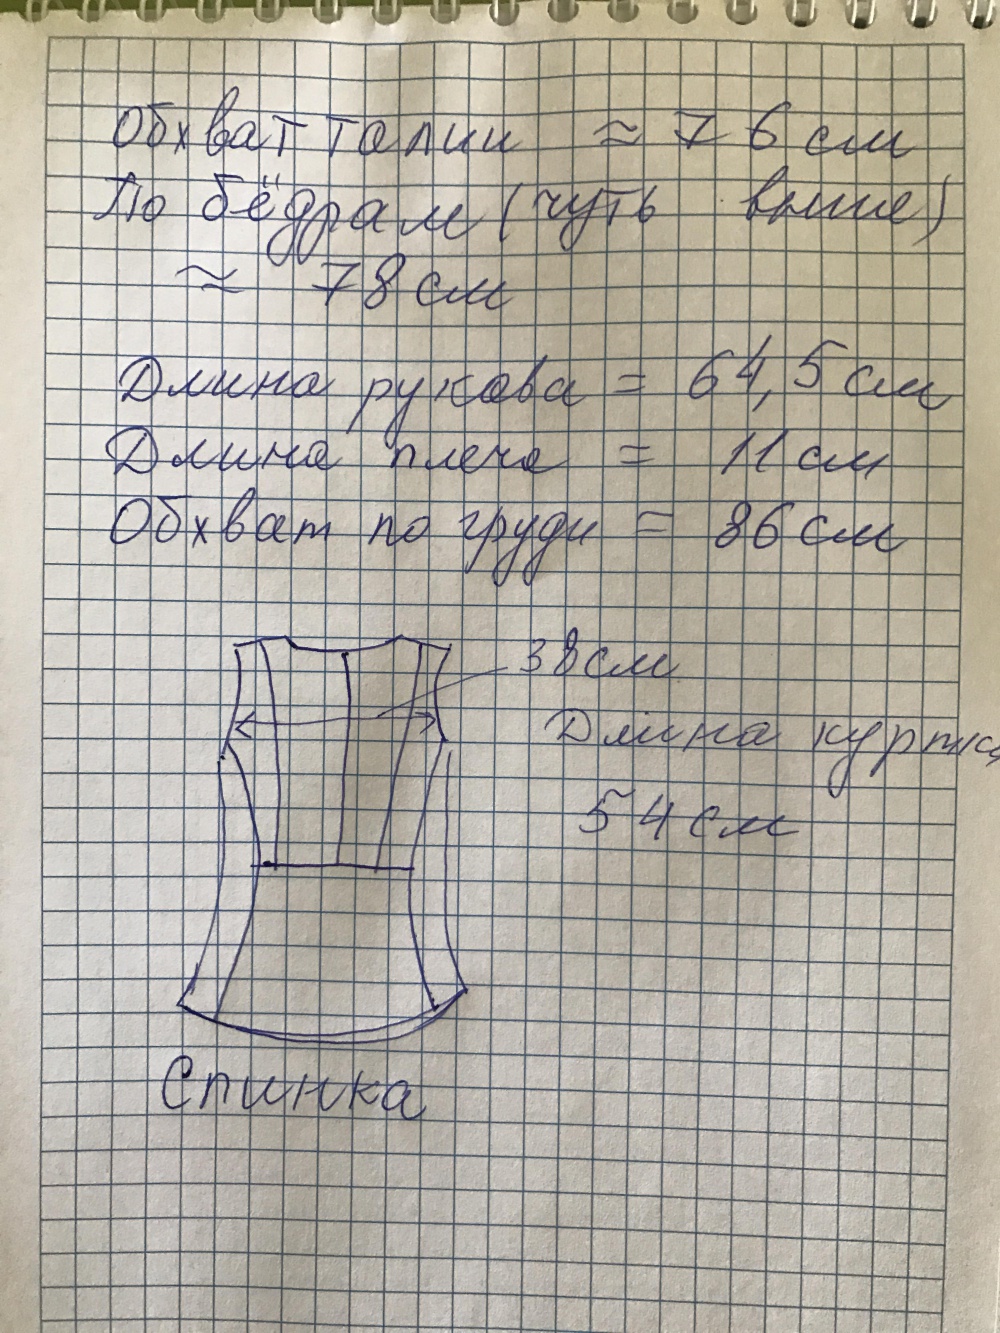 Обхват талии ≈ 76 см
По бёдрам (чуть выше)
≈ 78 см
Длина рукава = 64,5 см
Длина плеча = 11 см
Обхват по груди = 86 см
38 см
Длина куртки
54 см
Спинка